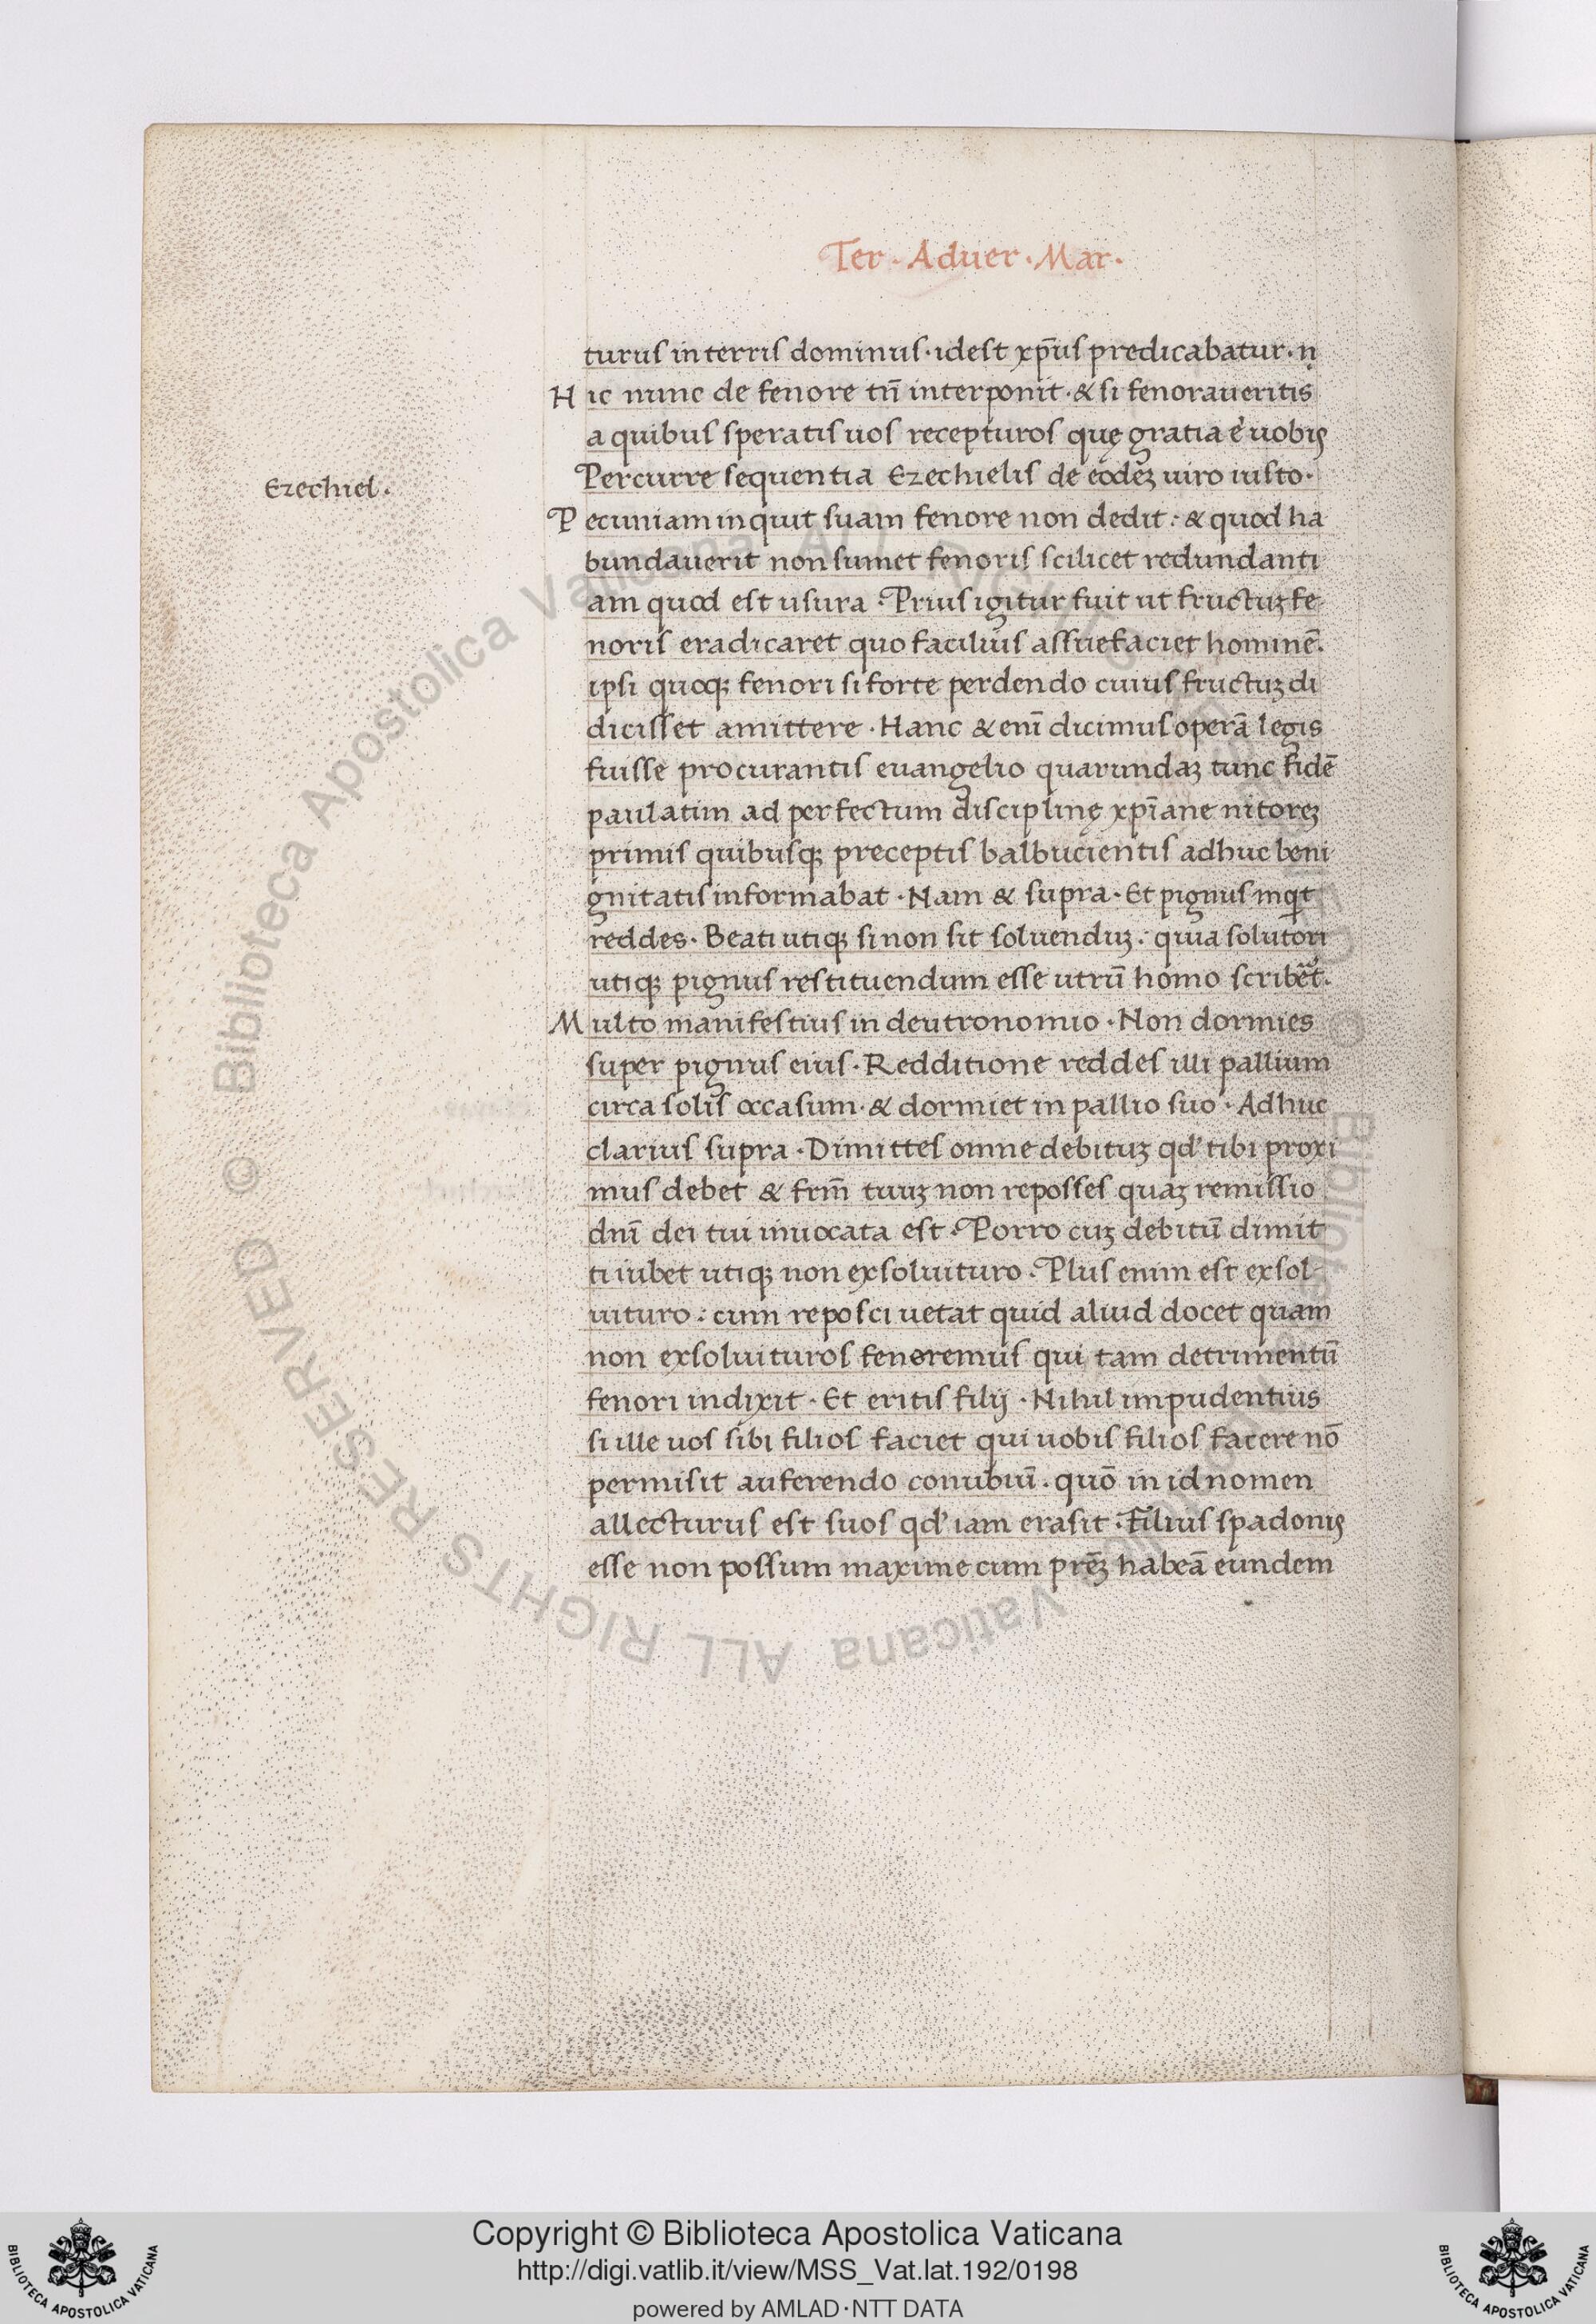 Ter · Aduer · Mar ·
turus in terris dominus · idest xp̄us predicabatur · n
Hic nunc de fenore cū interponit · & si fenoraueritis
a quibus speratis uos recepturos quę gratia ē uobis
Percurre sequentia Ezechielis de eodeꝫ uiro iusto ·
Ezechiel ·
Pecuniam inquit suam fenore non dedit : & quod ha
bundauerit non sumet fenoris scilicet redundanti
am quod est usura · Prius igitur fuit ut fructuꝫ fe
noris eradicaret quo facilius assuefaciet hominē ·
ipsi quoqꝫ fenori si forte perdendo cuius fructuꝫ di
dicisset amittere · Hanc & enī dicimus operā legis
fuisse procurantis euangelio quarundaꝫ tunc fidē
paulatim ad perfectum disciplinę xp̄iane nitoreꝫ
primis quibusqꝫ preceptis balbucientis adhuc beni
gnitatis informabat · Nam & supra · Et pignus inqt
reddes · Beati utiqꝫ si non sit soluenduꝫ : quia solutori
utiqꝫ pignus restituendum esse utrū homo scribēt ·
Multo manifestius in deutronomio · Non dormies
super pignus eius · Redditione reddes illi pallium
circa solis occasum · & dormiet in pallio suo · Adhuc
clarius supra · Dimittes omne debituꝫ qd' tibi proxi
mus debet & frm̄ tuuꝫ non reposses quaꝫ remissio
dnī dei tui inuocata est · Porro cuꝫ debitū dimit
ti iubet utiqꝫ non exsoluituro · Plus enim est exsol
uituro : cum reposci uetat quid aliud docet quam
non exsoluituros fenoremus qui tam detrimentū
fenori indixit · Et eritis filij · Nihil impudentius
si ille uos sibi filios faciet qui uobis filios facere nō
permisit auferendo conubiū · quō in id nomen
allecturus est suos qd' iam erasit · Filius spadonis
esse non possum maxime cum prēꝫ habeā eundem
© Biblioteca Apostolica Vaticana ALL RIGHTS RESERVED
Copyright © Biblioteca Apostolica Vaticana
http://digi.vatlib.it/view/MSS_Vat.lat.192/0198
powered by AMLAD·NTT DATA
BIBLIOTECA APOSTOLICA VATICANA
BIBLIOTECA APOSTOLICA VATICANA